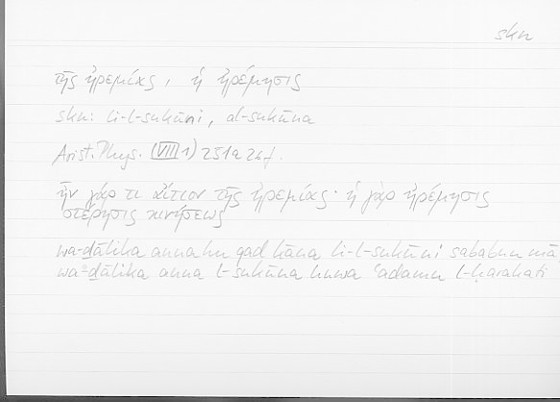 skn
τῆς ἠρεμίας, ἡ ἠρέμησις
skn: li-l-sukūni, al-sukūna
Arist. Phys. (VIII 1) 251a26f.
ἦν γάρ τι αἴτιον τῆς ἠρεμίας· ἡ γὰρ ἠρέμησις
στέρησις κινήσεως
wa-ḏālika annahu qad kāna li-l-sukūni sababun mā,
wa-ḏālika anna l-sukūna huwa ʿadamu l-ḥarakati